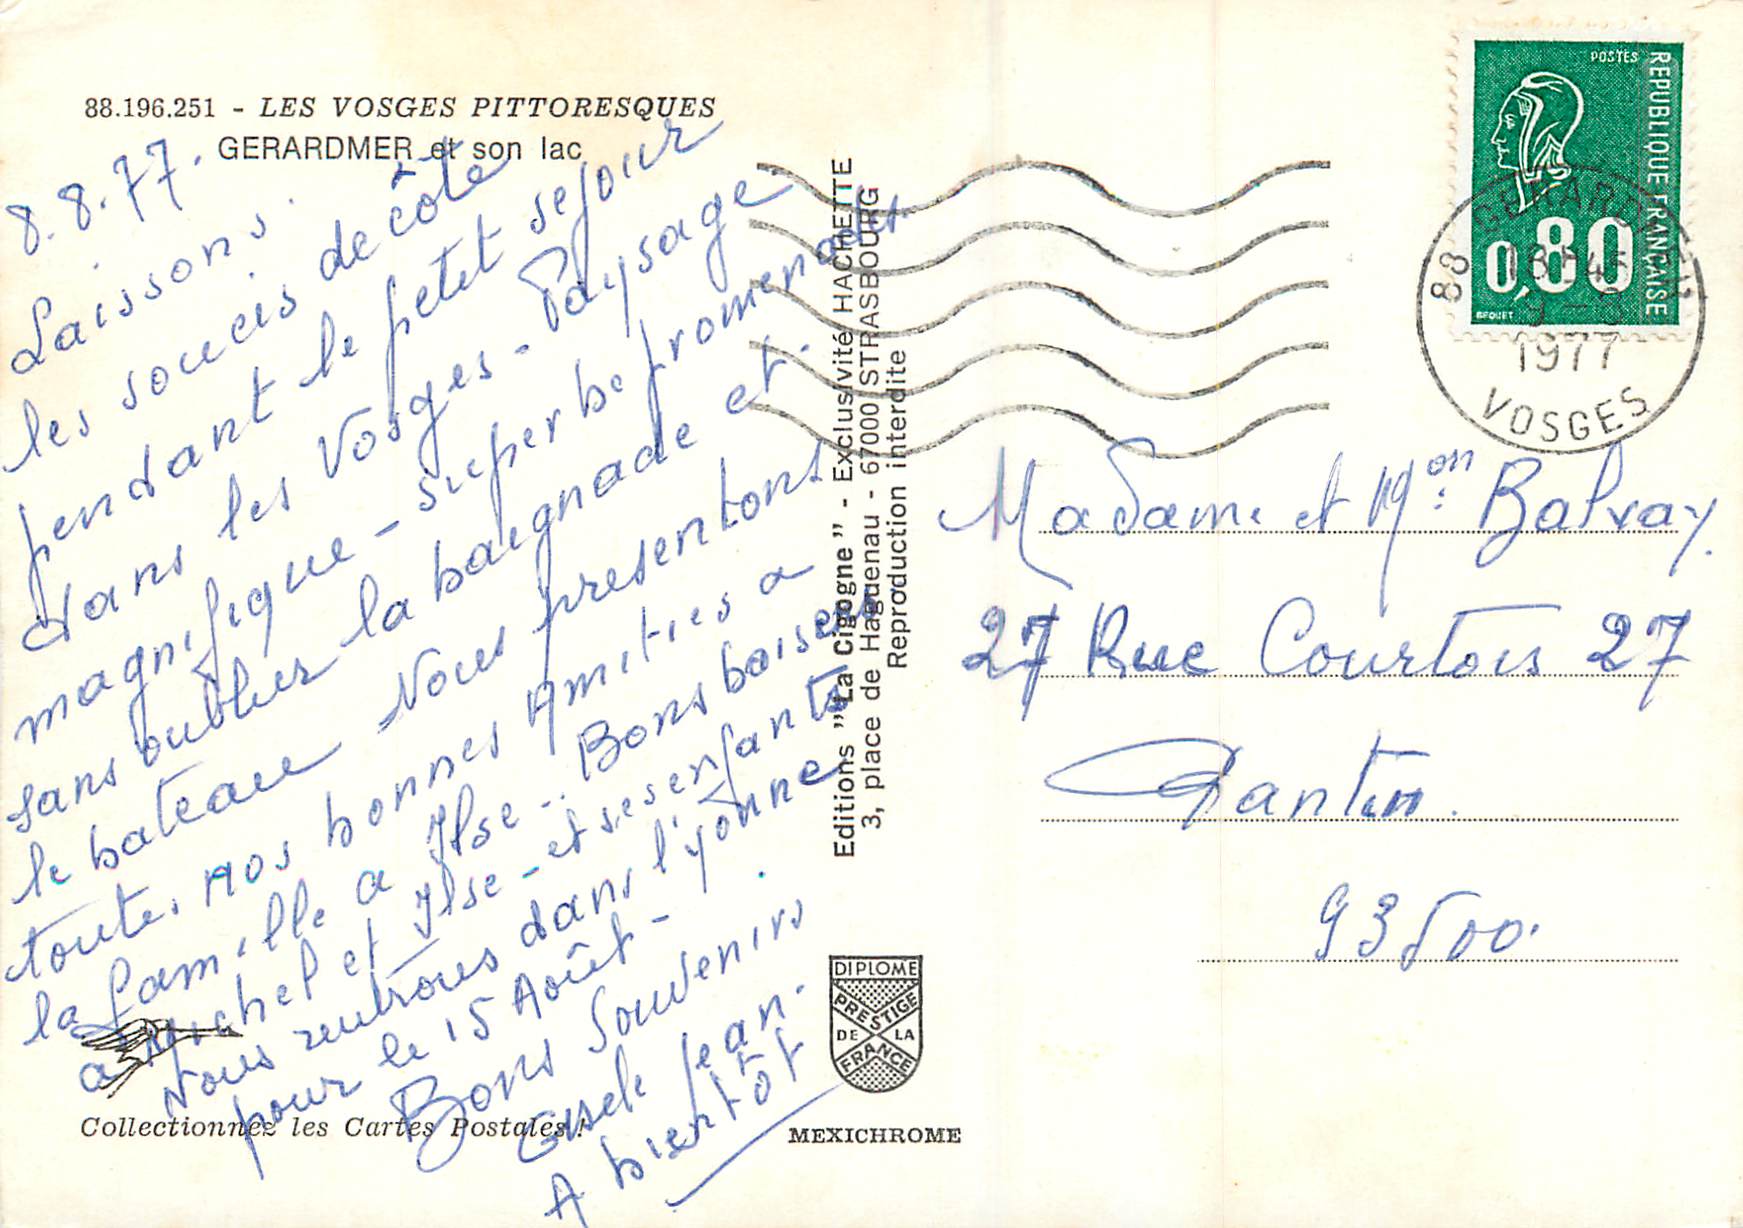 88.196.251 - LES VOSGES PITTORESQUES
GERARDMER et son lac
8.8.77.
Laissons
les soucis de côté
pendant le petit sejour
dans les Vosges - Paysage
magnifique - superbe promenades
sans oublier la baignade et
le bateau Nous presentons
toute, nos bonnes Amities a
la famille a Ilse .. Bons baisers
a Michel et Ilse - et ses enfants
Nous rentrons dans l'yonne
pour le 15 Août -
Bons Souvenirs
Gisele Jean.
A bientôt
Collectionnez les Cartes Postales !
Editions "La Cigogne" - Exclusivité HACHETTE
3, place de Haguenau - 67000 STRASBOURG
Reproduction interdite
DIPLOME
PRESTIGE
DE LA
FRANCE
MEXICHROME
POSTES
REPUBLIQUE FRANÇAISE
0,80
BEQUET
88 GERARDMER
1977
VOSGES
Madame et Mon: Balvay.
27 Rue Courtois 27
Pantin.
93500.